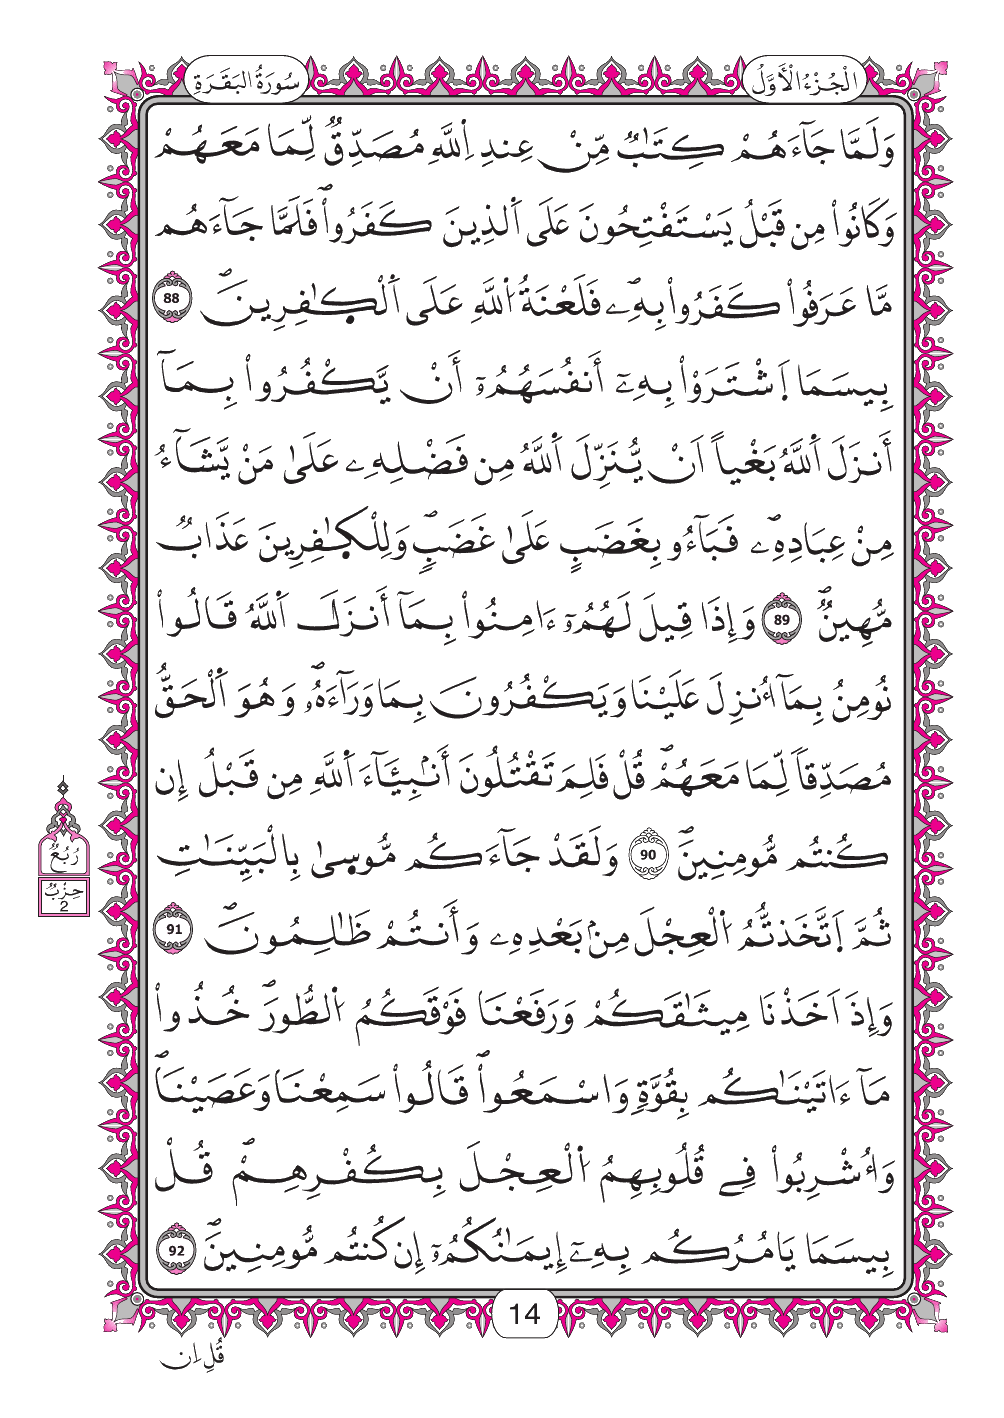 الْجُزْءُ الْأَوَّلُ
سُورَةُ الْبَقَرَةِ
وَلَمَّا جَآءَهُمْ كِتَٰبٌ مِّنْ عِندِ اِ۬للَّهِ مُصَدِّقٌ لِّمَا مَعَهُمْ
وَكَانُواْ مِن قَبْلُ يَسْتَفْتِحُونَ عَلَى اَ۬لذِينَ كَفَرُواْۖ فَلَمَّا جَآءَهُم
مَّا عَرَفُواْ كَفَرُواْ بِهِۦۖ فَلَعْنَةُ اُ۬للَّهِ عَلَى اَ۬لْكٰ۪فِرِينَۖ 88
بِيسَمَا اَ۪شْتَرَوْاْ بِهِۦٓ أَنفُسَهُمُۥٓ أَنْ يَّكْفُرُواْ بِمَآ
أَنزَلَ اَ۬للَّهُ بَغْياً اَنْ يُّنَزِّلَ اَ۬للَّهُ مِن فَضْلِهِۦ عَلَىٰ مَنْ يَّشَآءُ
مِنْ عِبَادِهِۦۖ فَبَآءُو بِغَضَبٍ عَلَىٰ غَضَبٍۖ وَلِلْكٰ۪فِرِينَ عَذَابٌ
مُّهِينٌۖ 89 وَإِذَا قِيلَ لَهُمُۥٓ ءَامِنُواْ بِمَآ أَنزَلَ اَ۬للَّهُ قَالُواْ
نُومِنُ بِمَآ أُنزِلَ عَلَيْنَا وَيَكْفُرُونَ بِمَا وَرَآءَهُۥۖ وَهُوَ اَ۬لْحَقُّ
مُصَدِّقاً لِّمَا مَعَهُمْۖ قُلْ فَلِمَ تَقْتُلُونَ أَنۢبِيَٓاءَ اَ۬للَّهِ مِن قَبْلُ إِن
كُنتُم مُّومِنِينَۖ 90 وَلَقَدْ جَآءَكُم مُّوس۪يٰ بِالْبَيِّنَٰتِ
ثُمَّ اَ۪تَّخَذتُّمُ اُ۬لْعِجْلَ مِنۢ بَعْدِهِۦ وَأَنتُمْ ظَٰلِمُونَۖ 91
وَإِذَ اَخَذْنَا مِيثَٰقَكُمْ وَرَفَعْنَا فَوْقَكُمُ اُ۬لطُّورَۖ خُذُواْ
مَآ ءَاتَيْنَٰكُم بِقُوَّةٍ وَاسْمَعُواْۖ قَالُواْ سَمِعْنَا وَعَصَيْنَاۖ
وَأُشْرِبُواْ فِے قُلُوبِهِمُ اُ۬لْعِجْلَ بِكُفْرِهِمْۖ قُلْ
بِيسَمَا يَامُرُكُم بِهِۦٓ إِيمَٰنُكُمُۥٓ إِن كُنتُم مُّومِنِينَۖ 92
رُبُعُ
حِزْبٌ
2
14
قُلِ اِن